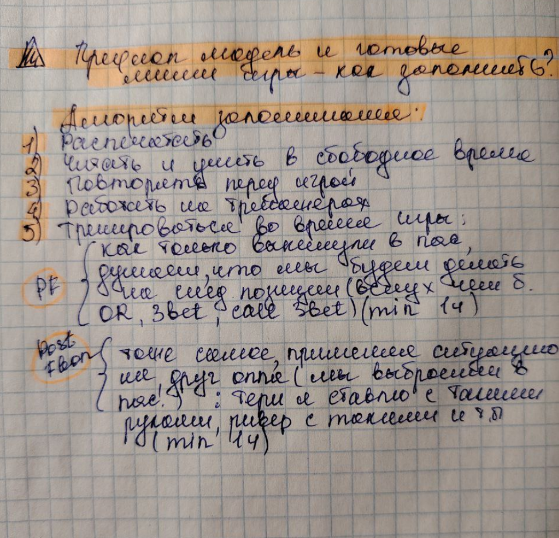 Префлоп модель и готовые
линии игры - как запомнить?
Алгоритм запоминания:
1) Распечатать
2) Читать и учить в свободное время
3) Повторять перед игрой
4) Работать на тренажерах
5) Тренироваться во время игры:
как только выкинули в пас,
думаем, что мы будем делать
на след позиции (вслух чем б.
PF
OR, 3bet, call 3bet) (min 1ч)
Post
Flop
тоже самое, применяя ситуацию
на друг оппа (мы выбросили в
пас.) : терн я ставлю с такими
руками, ривер с такими и тп
(min 1ч)